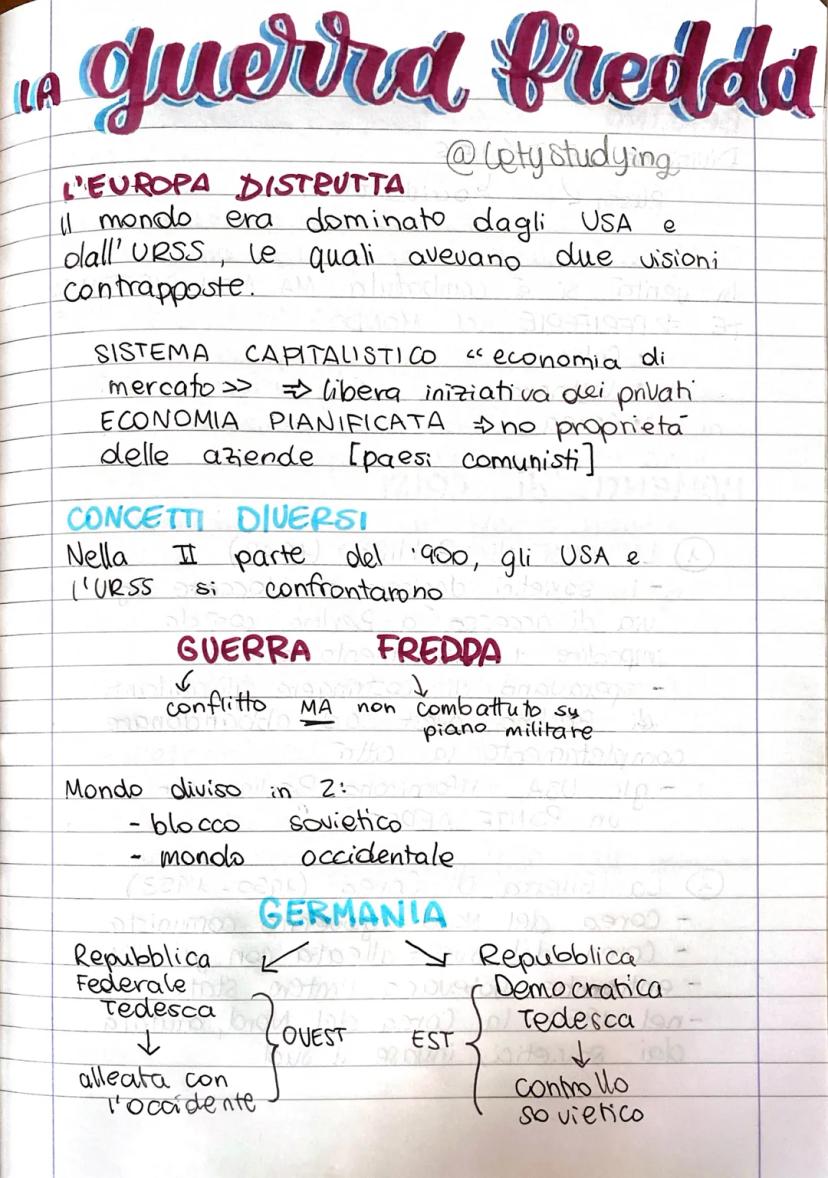 LA guerra fredda
@letystudying
L'EUROPA DISTRUTTA
Il mondo era dominato dagli USA e
dall'URSS, le quali avevano due visioni
contrapposte.
SISTEMA CAPITALISTICO “economia di
mercato>> ⇒ libera iniziativa dei privati
ECONOMIA PIANIFICATA ⇒ no proprietà
delle aziende [paesi comunisti]
CONCETTI DIVERSI
Nella II parte del '900, gli USA e
l'URSS si confrontarono
GUERRA FREDDA
↙ ↘
conflitto MA non combattuto su
piano militare
Mondo diviso in 2:
- blocco sovietico
- mondo occidentale
GERMANIA
Repubblica ↙ ↘ Repubblica
Federale Democratica
Tedesca Tedesca
↓ OUEST EST ↓
alleata con controllo
l'occidente sovietico